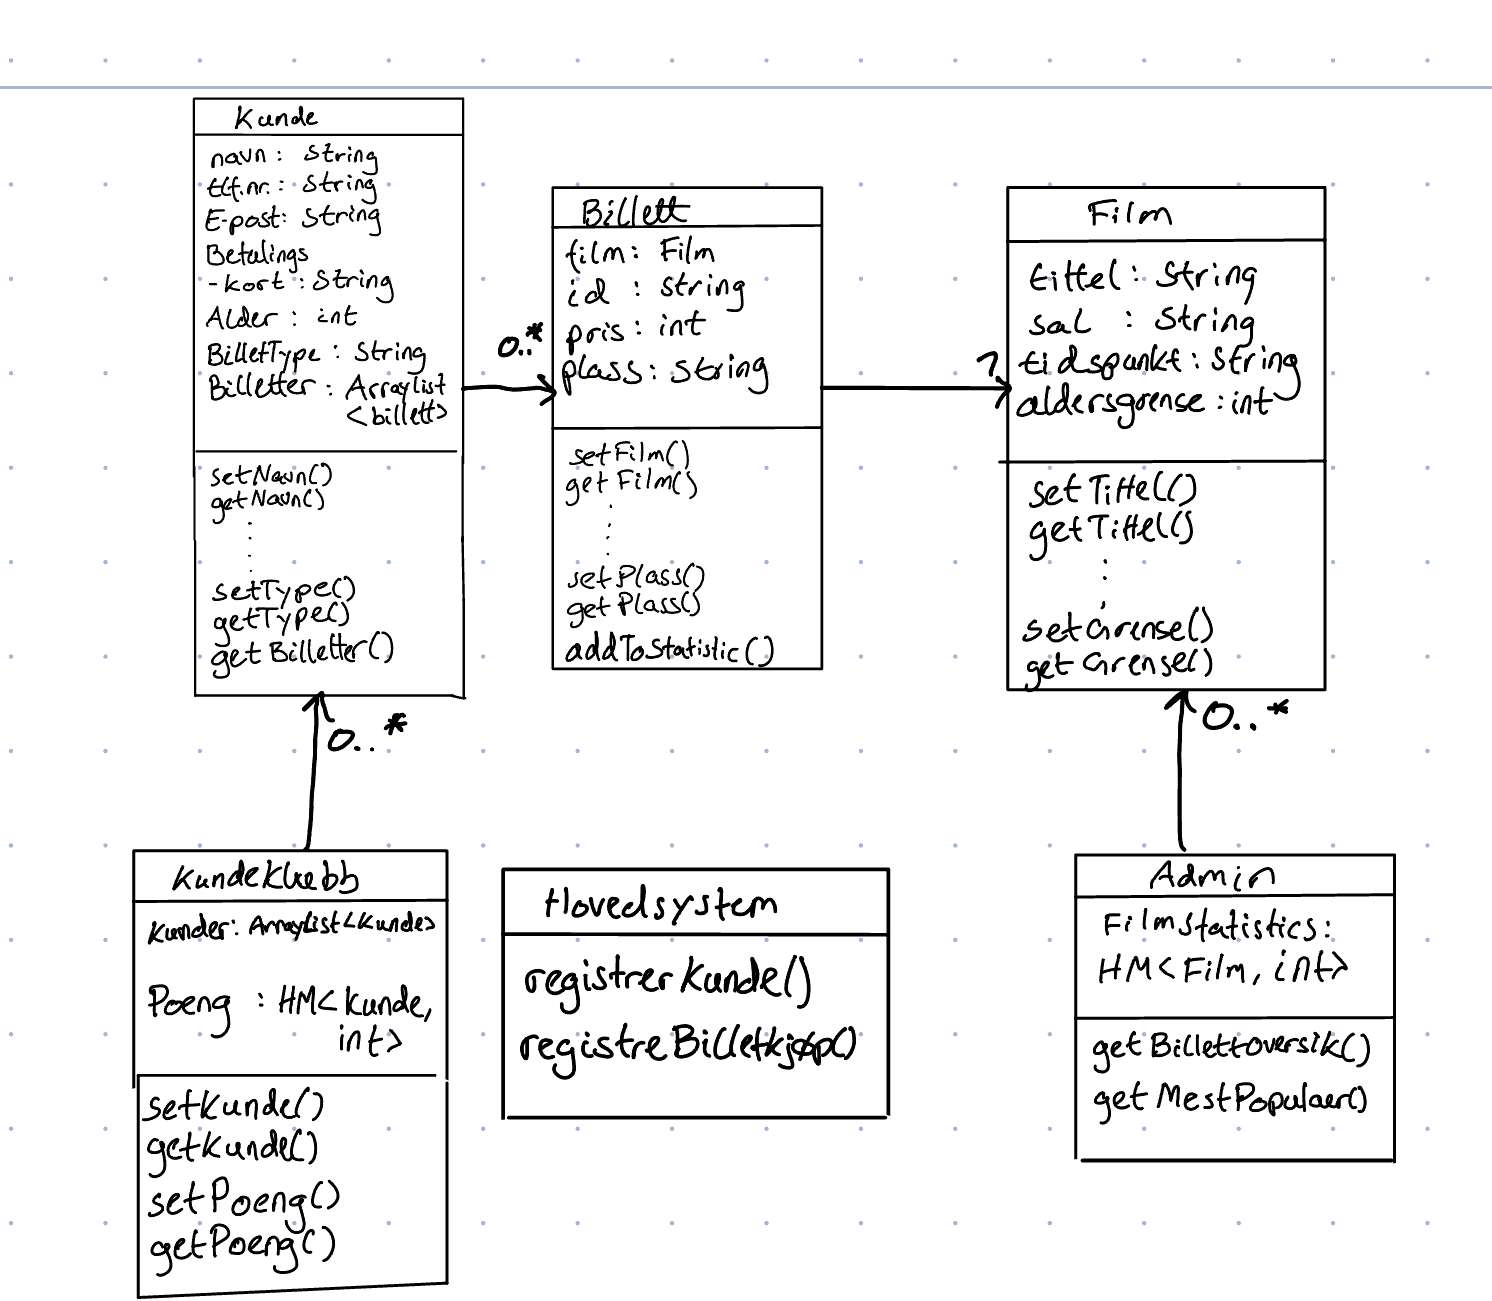 Kunde
navn: String
tlf.nr.: String
E-post: String
Betalings
-kort: String
Alder: int
BilletType: String
Billetter: Arraylist
<billett>
setNavn()
getNavn()
setType()
getType()
getBilletter()
0..*
Billett
film: Film
id : string
pris: int
plass: string
setFilm()
getFilm()
setPlass()
getPlass()
addToStatistic()
1
Film
tittel: String
sal : String
tidspunkt: String
aldersgrense: int
setTittel()
getTittel()
setGrense()
getGrense()
0..*
0..*
Kundeklubb
Kunder: ArrayList<Kunde>
Poeng : HM<Kunde,
int>
setKunde()
getKunde()
setPoeng()
getPoeng()
Hovedsystem
registrerKunde()
registreBilletkjøp()
Admin
Filmstatistics:
HM<Film, int>
getBillettoversik()
getMestPopulaer()